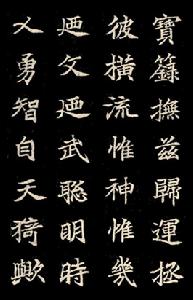 寶籙撫茲歸運極
彼橫流惟神惟幾
迺文迺武聰明時
乂勇智自天猗歟